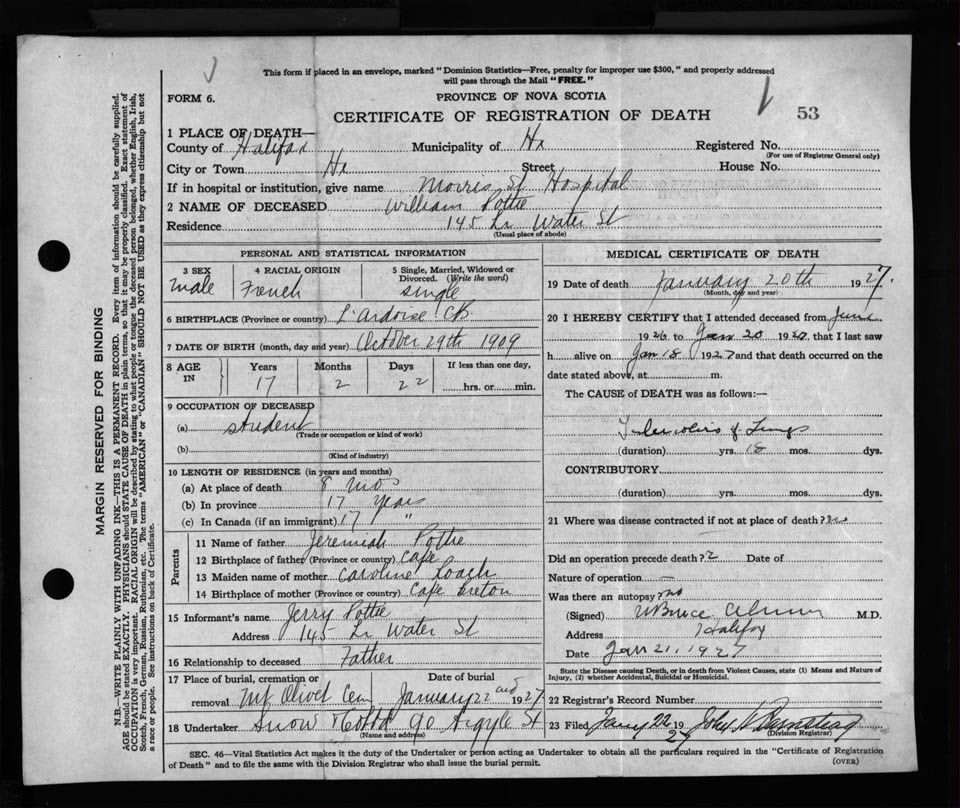 This form if placed in an envelope, marked "Dominion Statistics—Free, penalty for improper use $300," and properly addressed
will pass through the Mail "FREE."
FORM 6.
PROVINCE OF NOVA SCOTIA
53
CERTIFICATE OF REGISTRATION OF DEATH
1 PLACE OF DEATH—
County of Halifax Municipality of Hx Registered No.
(For use of Registrar General only)
City or Town Hx Street House No.
If in hospital or institution, give name Morris St Hospital
2 NAME OF DECEASED William Pottie
Residence 145 Lr Water St
(Usual place of abode)
PERSONAL AND STATISTICAL INFORMATION
3 SEX 4 RACIAL ORIGIN 5 Single, Married, Widowed or
Divorced. (Write the word)
Male French Single
6 BIRTHPLACE (Province or country) L'ardoise CB.
7 DATE OF BIRTH (month, day and year) October 29th 1909
8 AGE IN Years Months Days If less than one day,
17 2 22 hrs. or min.
9 OCCUPATION OF DECEASED
(a) student
(Trade or occupation or kind of work)
(b)
(Kind of industry)
10 LENGTH OF RESIDENCE (in years and months)
(a) At place of death 8 mos
(b) In province 17 years
(c) In Canada (if an immigrant) 17 "
Parents
11 Name of father Jeremiah Pottie
12 Birthplace of father (Province or country) Cape
13 Maiden name of mother Caroline Roach
14 Birthplace of mother (Province or country) Cape Breton
15 Informant's name Jerry Pottie
Address 145 Lr Water St
16 Relationship to deceased Father
17 Place of burial, cremation or Date of burial
removal Mt Olivet Cem January 22nd 1927
18 Undertaker Snow & Co Ltd 90 Argyle St
(Name and address)
MEDICAL CERTIFICATE OF DEATH
19 Date of death January 20th 1927.
(Month, day and year)
20 I HEREBY CERTIFY that I attended deceased from June
1926 to Jan 20 1927 that I last saw
h alive on Jan 18 1927 and that death occurred on the
date stated above, at m.
The CAUSE OF DEATH was as follows:—
Tuberculosis of Lungs
(duration) yrs. 18 mos. dys.
CONTRIBUTORY
(duration) yrs. mos. dys.
21 Where was disease contracted if not at place of death?
Did an operation precede death? Date of
Nature of operation —
Was there an autopsy no
(Signed) Bruce M.D.
Address Halifax
Date Jan 21, 1927
State the Disease causing Death, or in death from Violent Causes, state (1) Means and Nature of
Injury, (2) whether Accidental, Suicidal or Homicidal.
22 Registrar's Record Number
23 Filed Jany 22 1927 John
(Division Registrar)
SEC. 46—Vital Statistics Act makes it the duty of the Undertaker or person acting as Undertaker to obtain all the particulars required in the "Certificate of Registration
of Death" and to file the same with the Division Registrar who shall issue the burial permit.
(OVER)
MARGIN RESERVED FOR BINDING
N.B.—WRITE PLAINLY WITH UNFADING INK—THIS IS A PERMANENT RECORD. Every item of information should be carefully supplied.
AGE should be stated EXACTLY. PHYSICIANS should STATE CAUSE OF DEATH in plain terms, so that it may be properly classified. Exact statement of
OCCUPATION is very important. RACIAL ORIGIN will be described by stating to what people or tongue the deceased person belonged, whether English, Irish,
Scotch, French, German, Russian, Ruthenian, etc. The terms "AMERICAN" or "CANADIAN" SHOULD NOT BE USED as they express citizenship but not
a race or people. See instructions on back of Certificate.